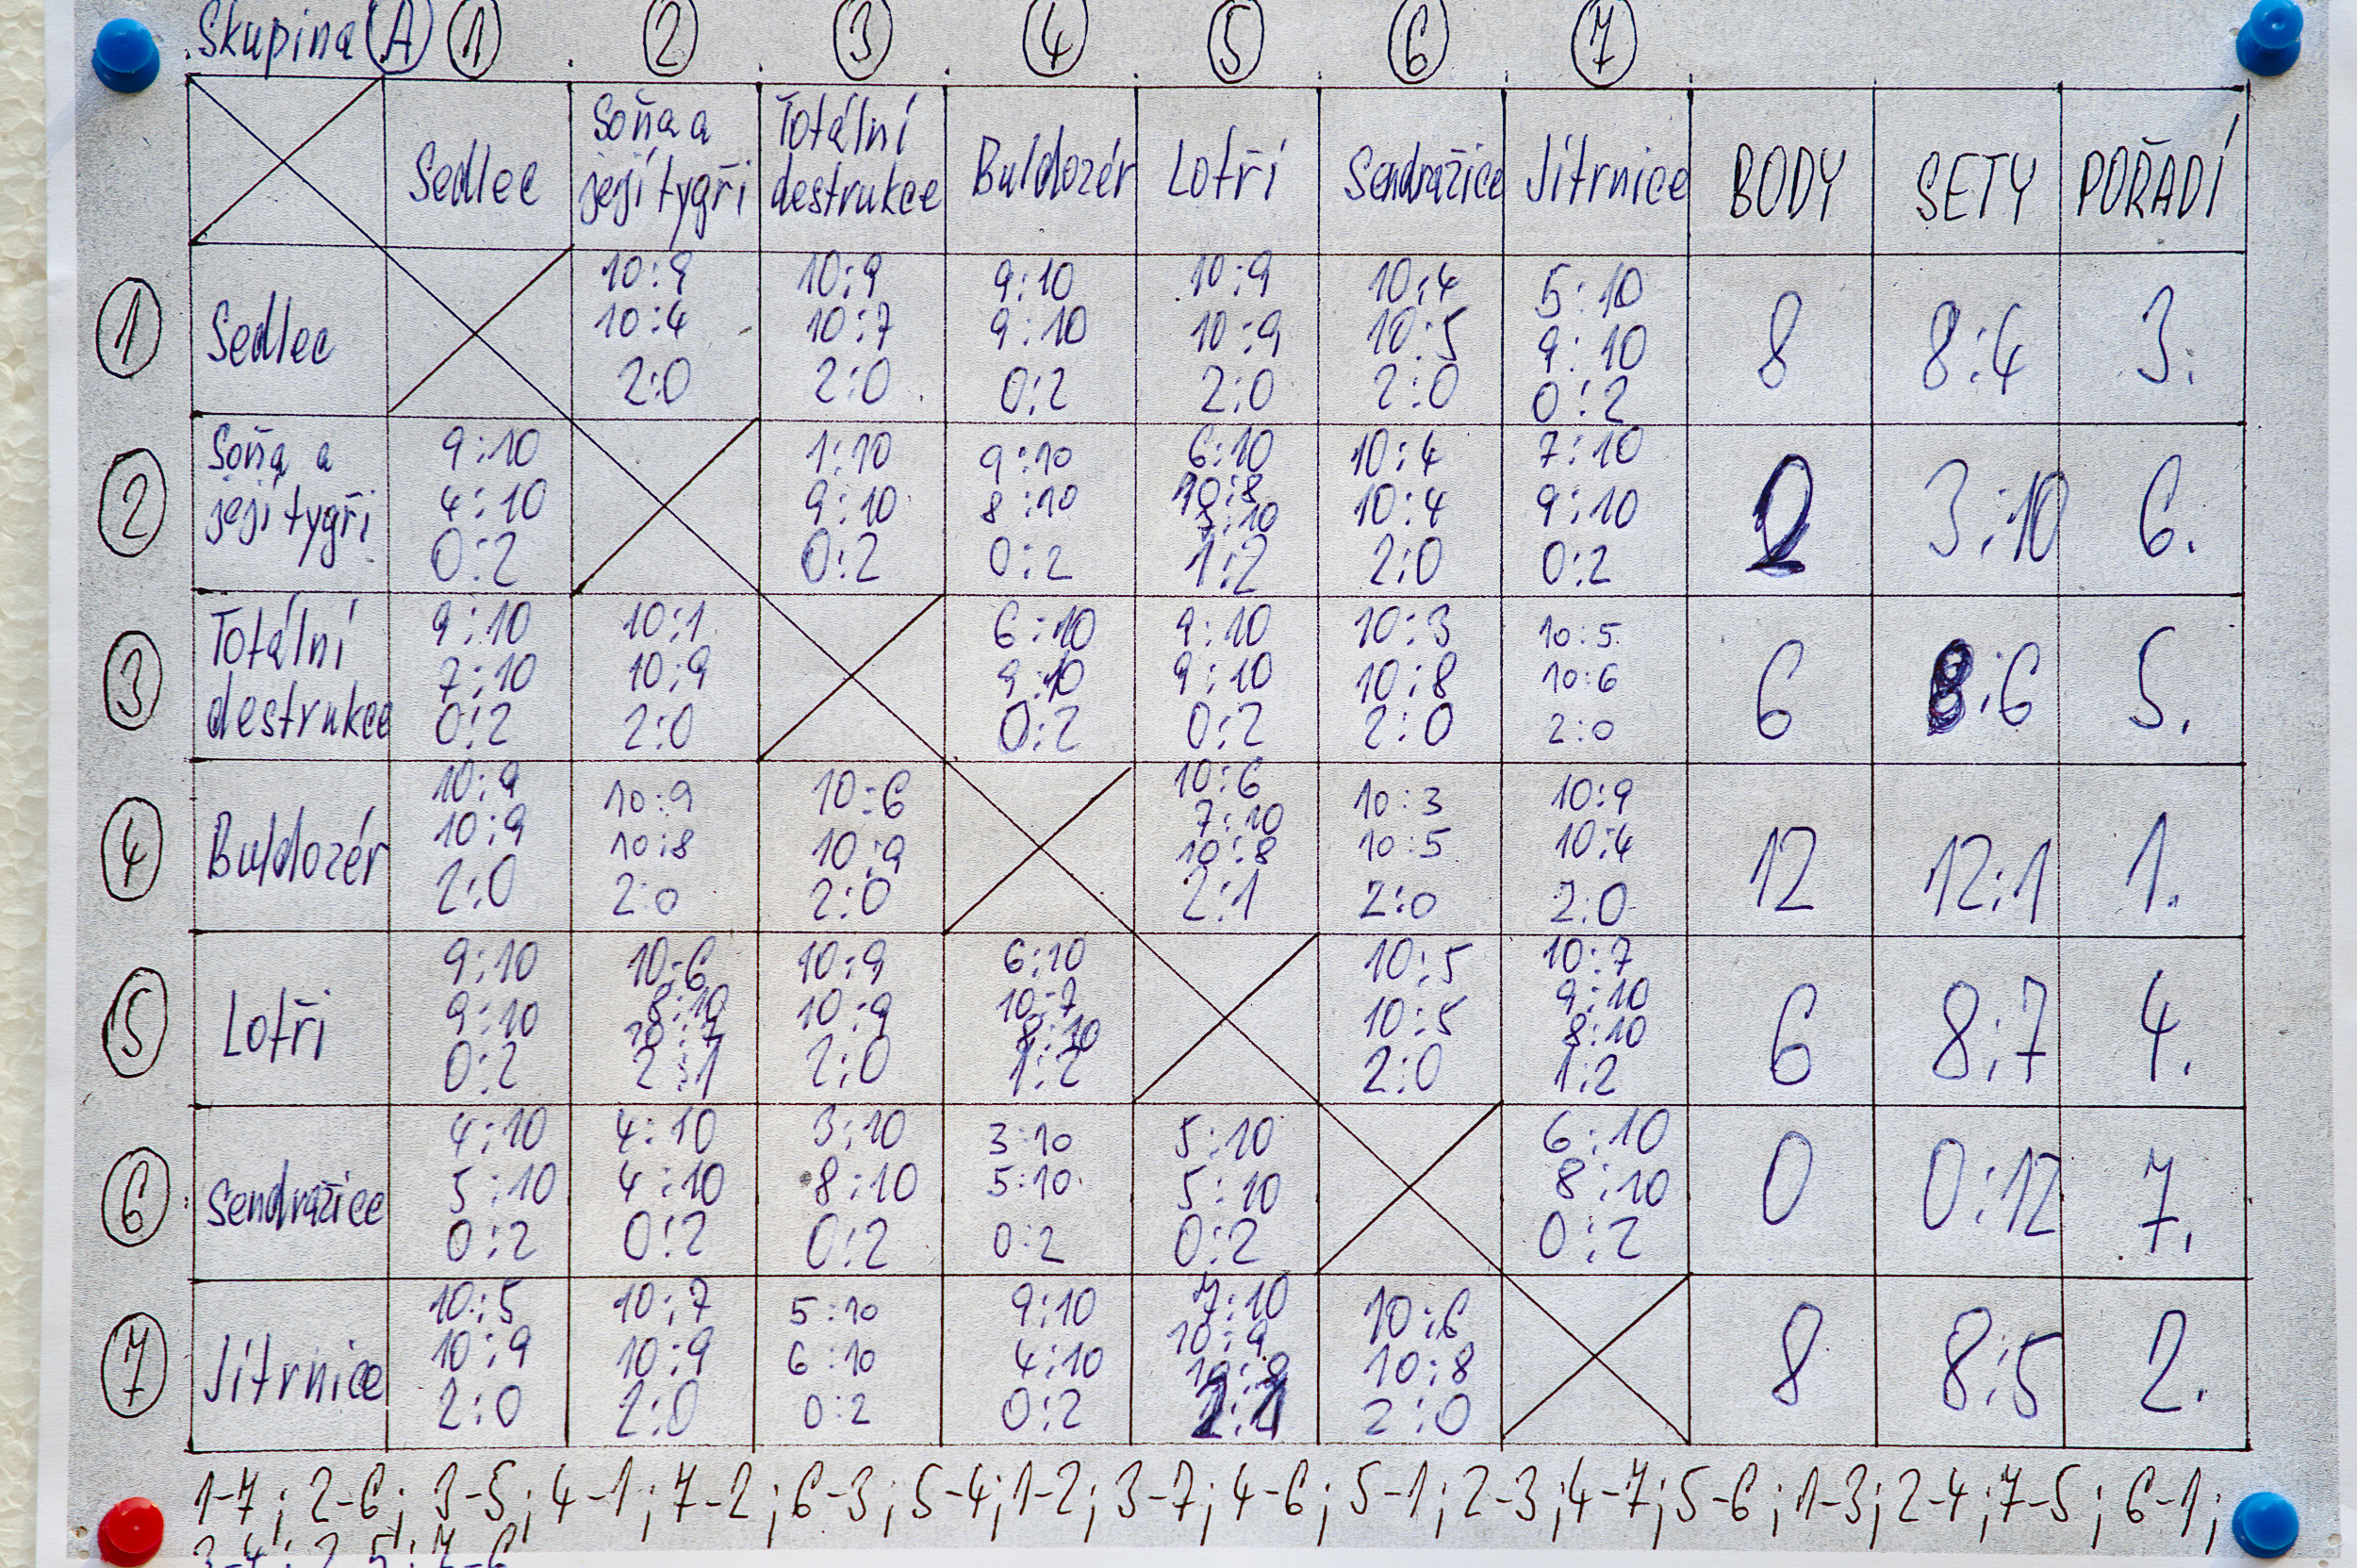 Skupina A 1 2 3 4 5 6 7
Sedlec Soňa a její tygři Totální destrukce Buldozér Lotři Sendražice Jitrnice BODY SETY POŘADÍ
1 Sedlec 10:9 10:4 2:0 10:9 10:7 2:0 9:10 9:10 0:2 10:9 10:9 2:0 10:4 10:5 2:0 5:10 9:10 0:2 8 8:4 3.
2 Soňa a její tygři 9:10 4:10 0:2 1:10 9:10 0:2 9:10 8:10 0:2 6:10 10:8 7:10 1:2 10:4 10:4 2:0 7:10 9:10 0:2 2 3:10 6.
3 Totální destrukce 9:10 7:10 0:2 10:1 10:9 2:0 6:10 9:10 0:2 9:10 9:10 0:2 10:3 10:8 2:0 10:5 10:6 2:0 6 8:6 5.
4 Buldozér 10:9 10:9 2:0 10:9 10:8 2:0 10:6 10:9 2:0 10:6 7:10 10:8 2:1 10:3 10:5 2:0 10:9 10:4 2:0 12 12:1 1.
5 Lotři 9:10 9:10 0:2 10:6 8:10 10:7 2:1 10:9 10:9 2:0 6:10 10:7 8:10 1:2 10:5 10:5 2:0 10:7 9:10 8:10 1:2 6 8:7 4.
6 Sendražice 4:10 5:10 0:2 4:10 4:10 0:2 3:10 8:10 0:2 3:10 5:10 0:2 5:10 5:10 0:2 6:10 8:10 0:2 0 0:12 7.
7 Jitrnice 10:5 10:9 2:0 10:7 10:9 2:0 5:10 6:10 0:2 9:10 4:10 0:2 7:10 10:9 10:8 2:1 10:6 10:8 2:0 8 8:5 2.
1-7; 2-6; 3-5; 4-1; 7-2; 6-3; 5-4; 1-2; 3-7; 4-6; 5-1; 2-3; 4-7; 5-6; 1-3; 2-4; 7-5; 6-1;